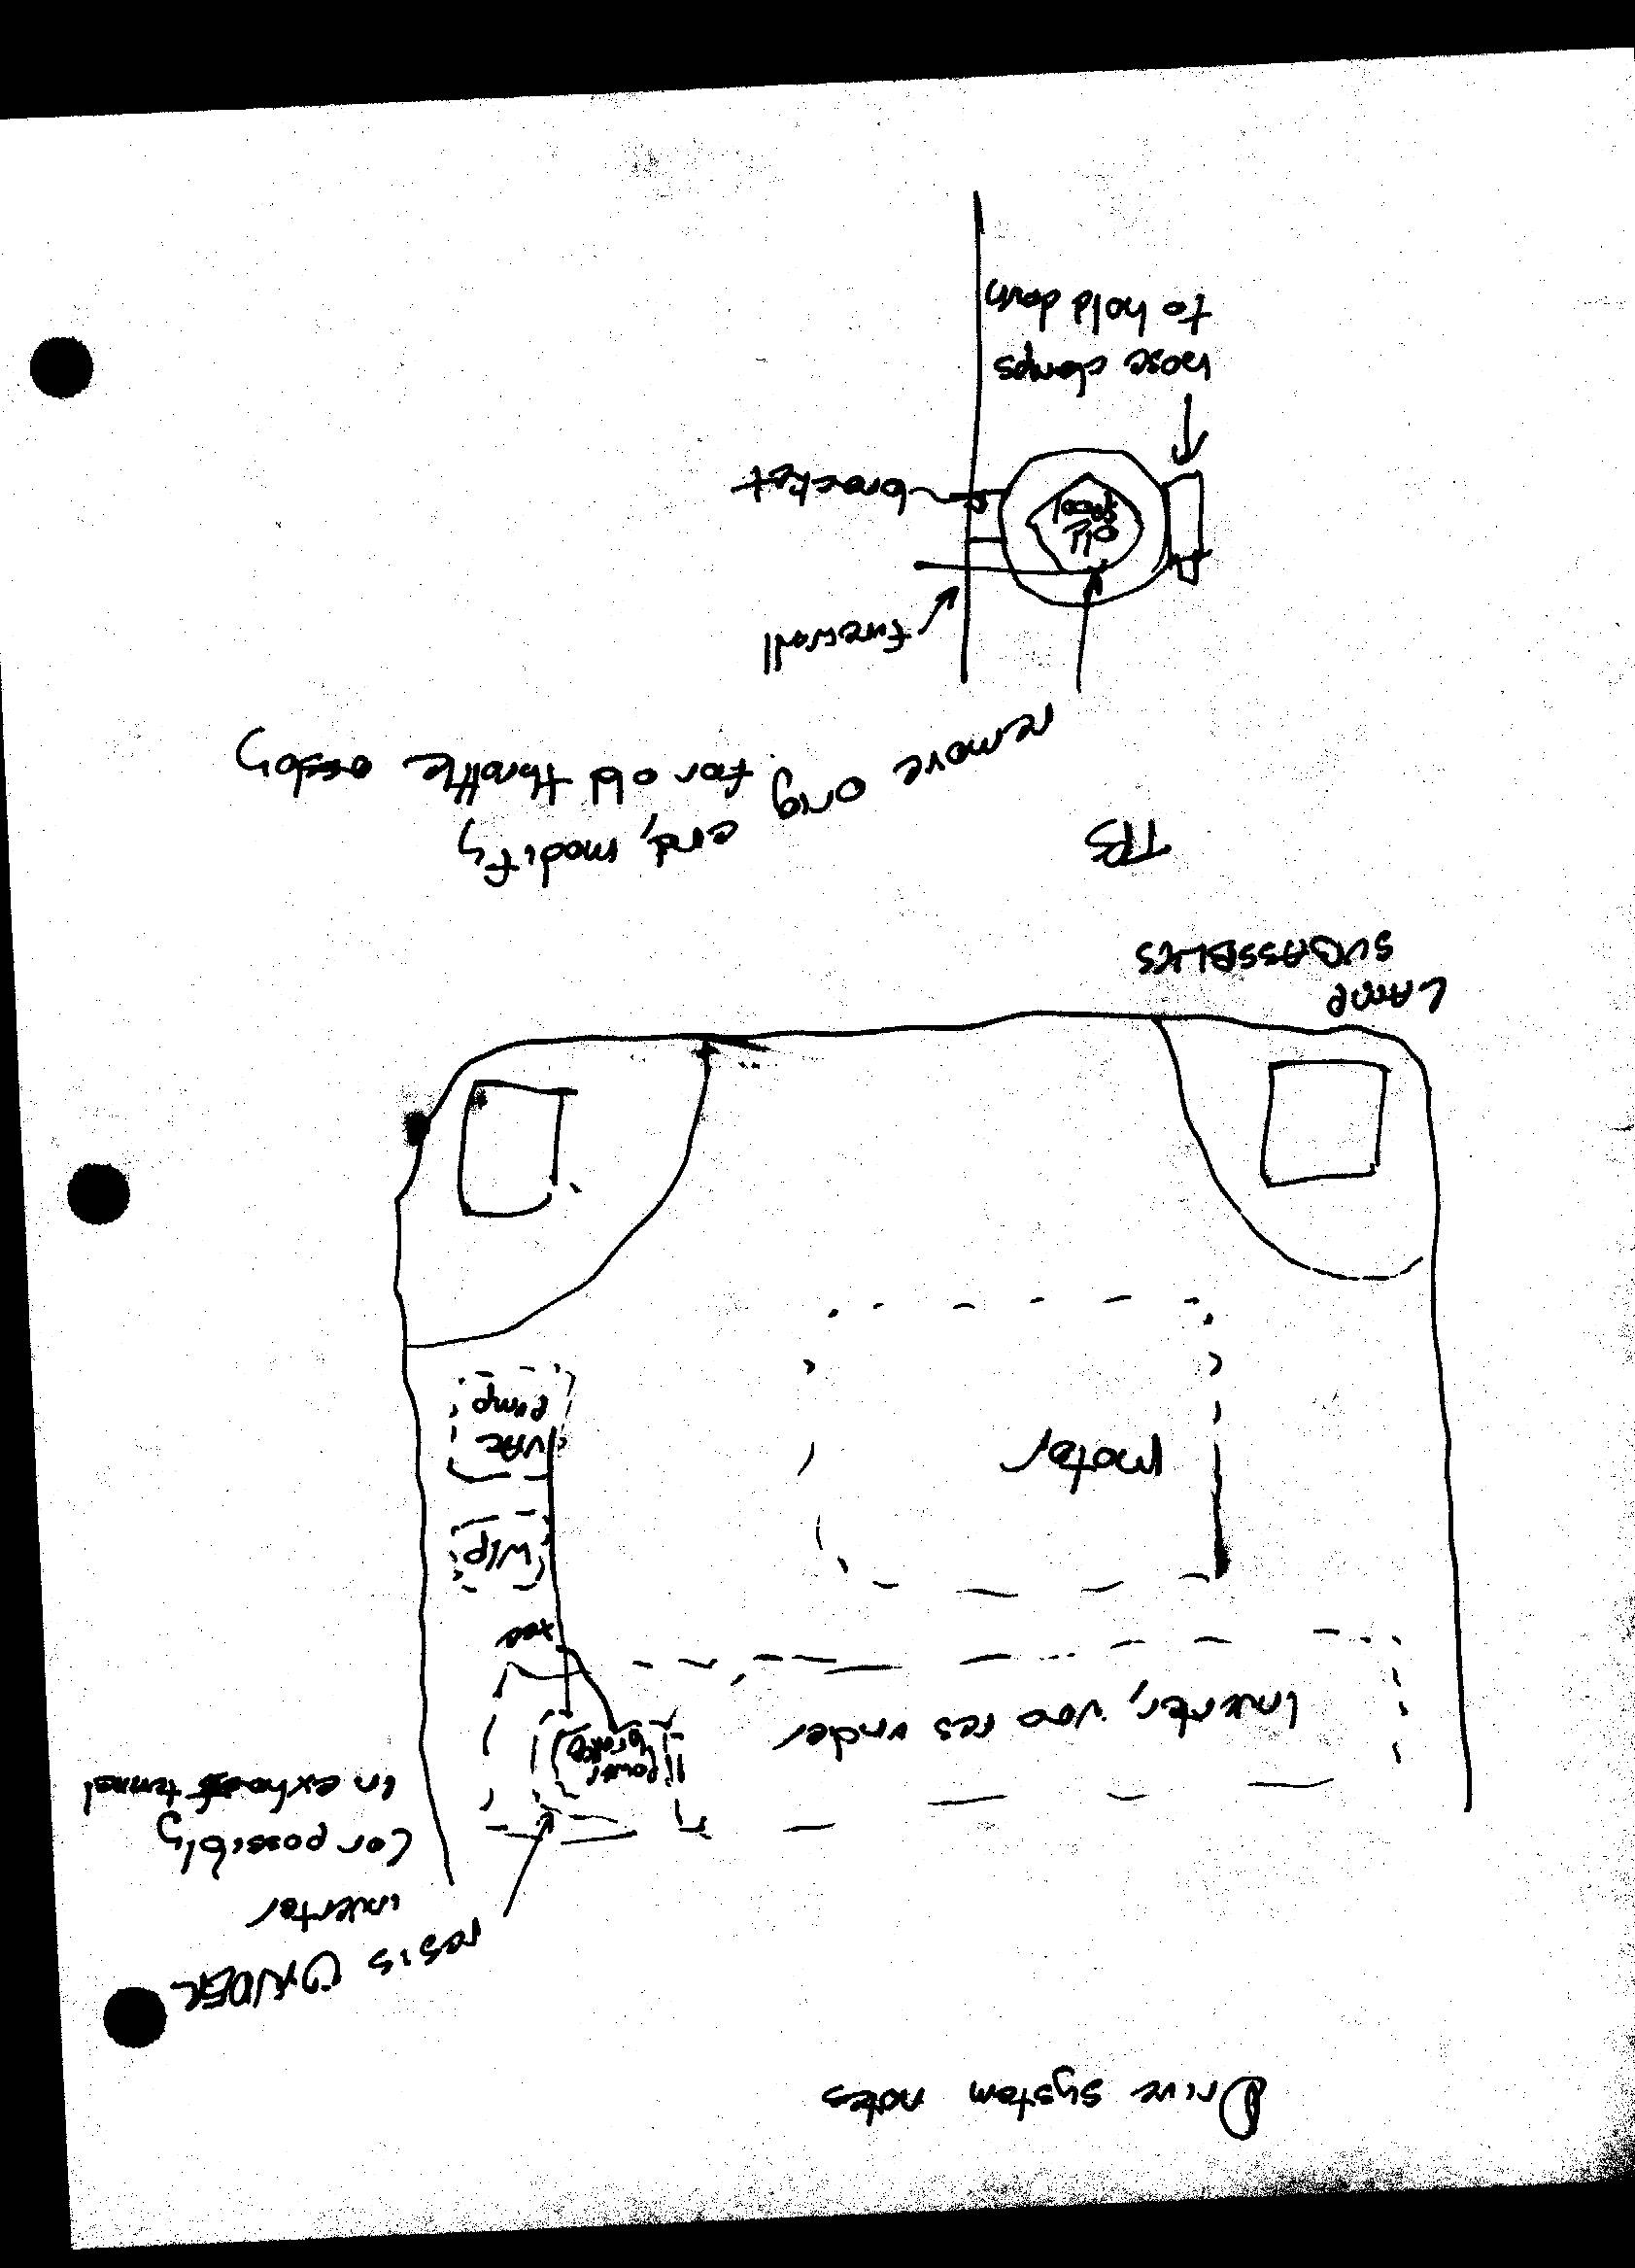 Drive system notes
res is UNDER
inverter
(or possibly
in exhaust tunnel
Power
brake
inverter, v00 res under
res
W/P
VAC
Pump
motor
LAMP
SUBASSBLIES
TPS
remove orig end, modify
for old throttle assbly
firewall
old
bracket
hose clamps
to hold down